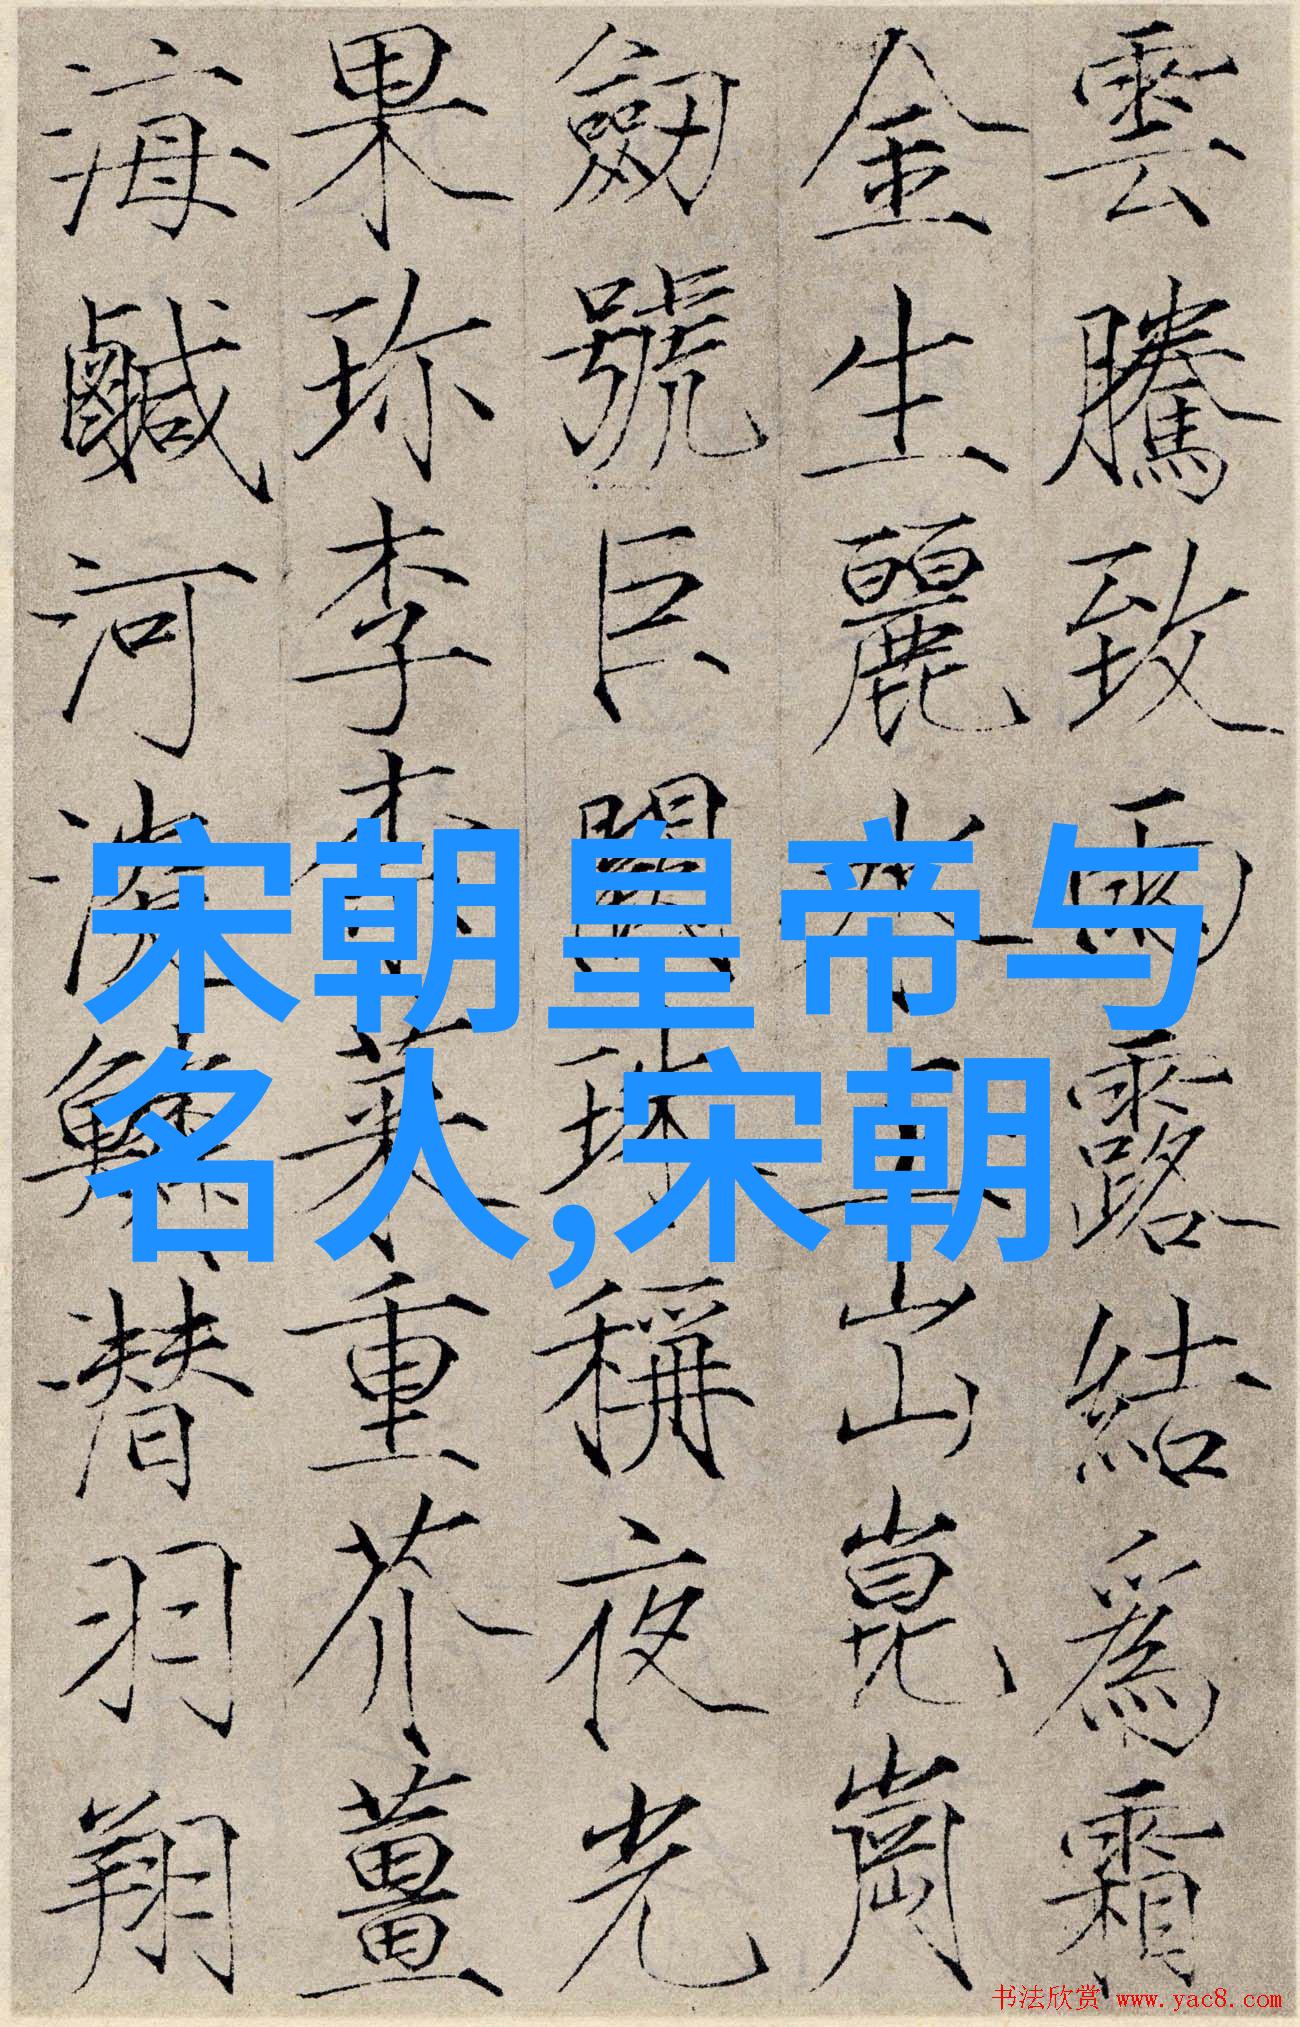 雲騰致雨露結爲霜
金生麗水出崑崗
劒號巨闕珠稱夜光
果珎李柰菜重芥薑
海鹹河淡鱗潜羽翔
宋朝皇帝与
名人,宋朝
书法欣赏 www.yac8.com